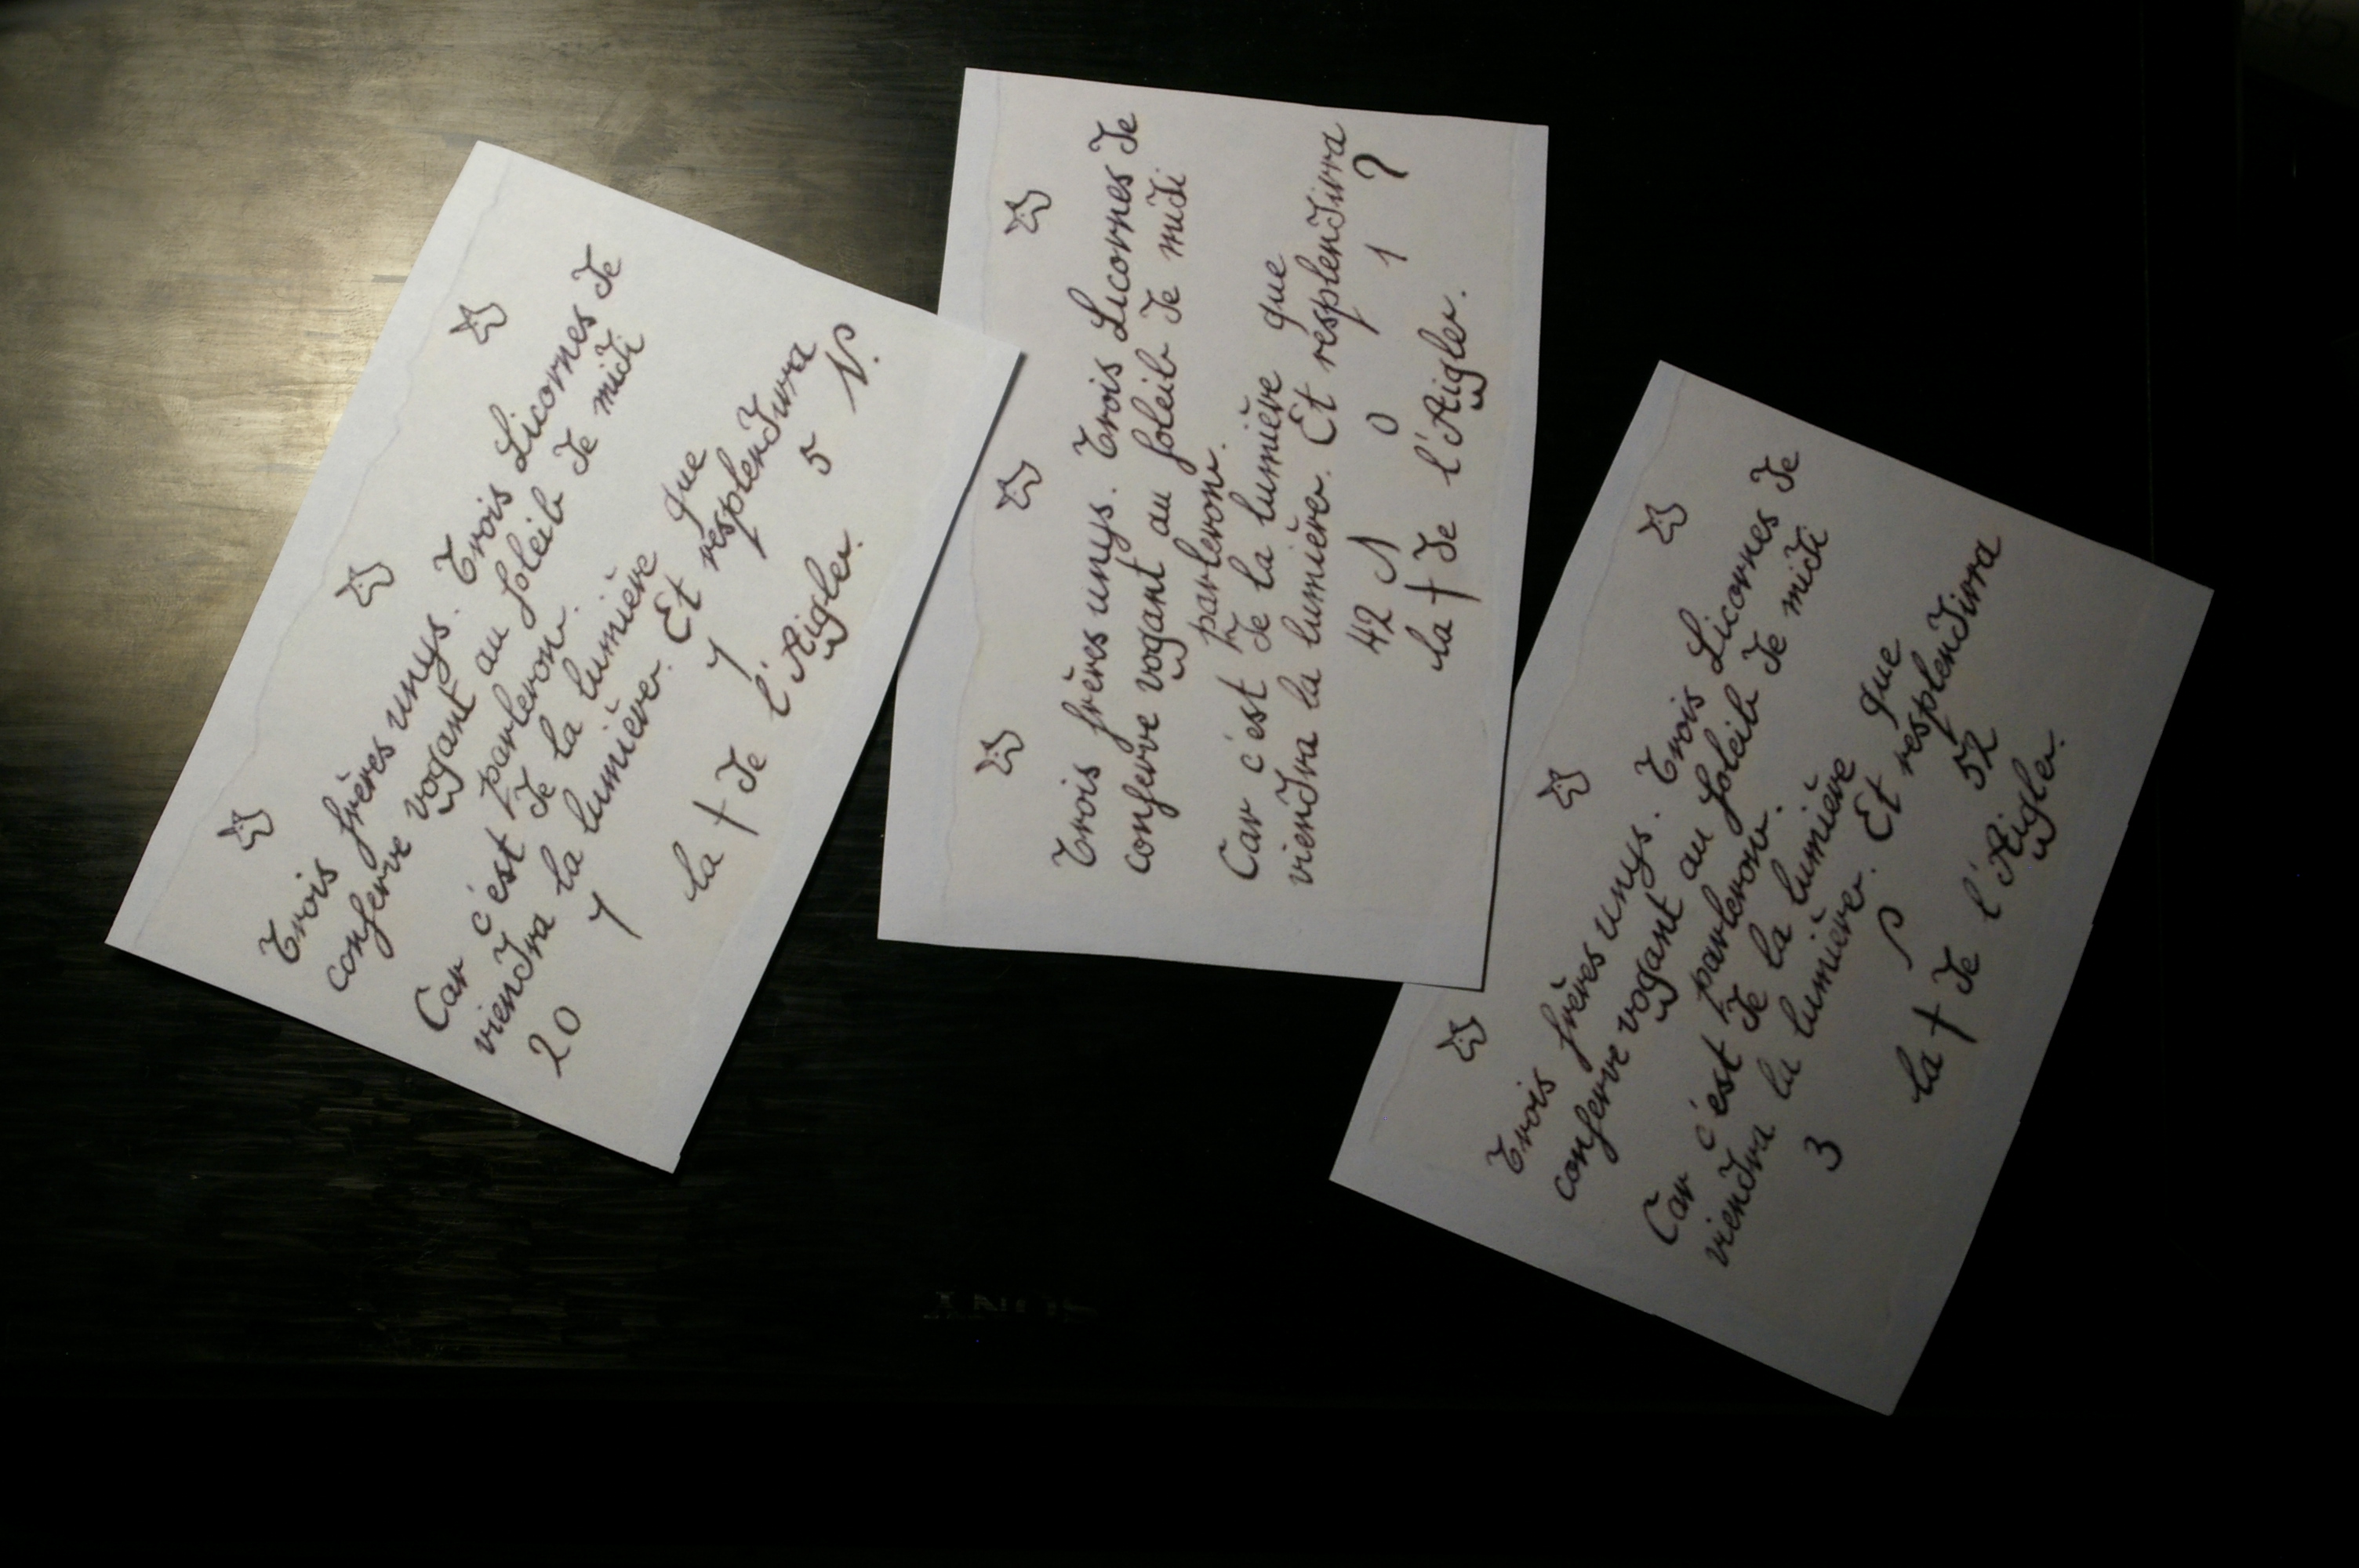 Trois frères unys. Trois Licornes de
conſerve vogant au ſoleil de midi
parleron.
Car c'est de la lumière que
viendra la lumière. Et resplendira
20 7 7 5 N.
la † de l'Aigle.
Trois frères unys. Trois Licornes de
conſerve vogant au ſoleil de midi
parleron.
Car c'est de la lumière que
viendra la lumière. Et resplendira
42 0 1
la † de l'Aigle.
Trois frères unys. Trois Licornes de
conſerve vogant au ſoleil de midi
parleron.
Car c'est de la lumière que
viendra la lumière. Et resplendira
3 52
la † de l'Aigle.